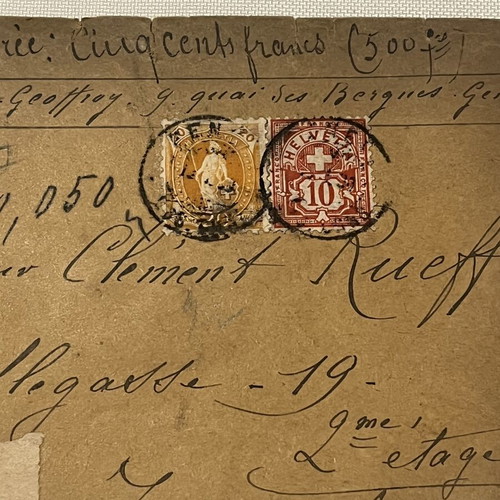 rée: Cinq cents francs (500 frs)
Geoffroy. 9. quai des Bergues. Gen
20 20
HELVETIA
10
FRANCO
,050
ur Clément Rueff
legasse - 19 -
2me étage